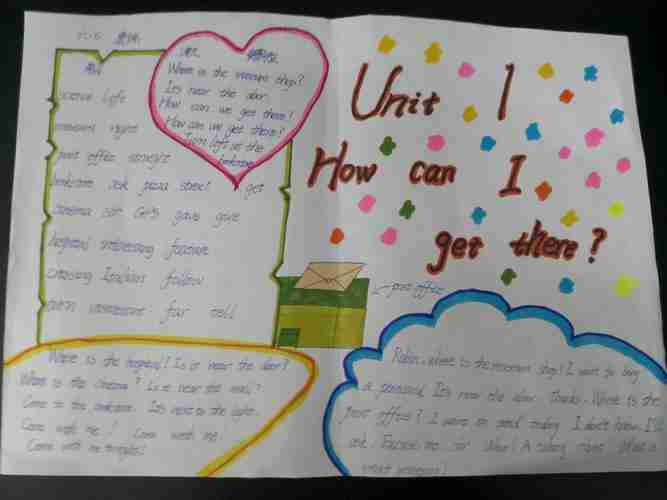 Unit 1
How can I
get there?
Where is the museum shop?
It's near the door.
How can we get there?
How can we get there?
Turn left at the
bookstore
science left
museum right
post office straight
bookstore ask pizza street get
cinema sir GPS gave
hospital interesting feature
crossing Italian follow
turn restaurant far tell
post office
Where is the hospital? Is it near the door?
Where is the cinema? Is it near the
Come to the bookstore. It's next to the
Come with me! Come with me.
Come with me
Robin, where is the museum shop? I want to buy
a postcard. It's near the door. Thanks. Where is the
post office? I want to send today. I don't know. I'll
ask. Excuse me sir. Wow! A talking robot. What a
great museum!